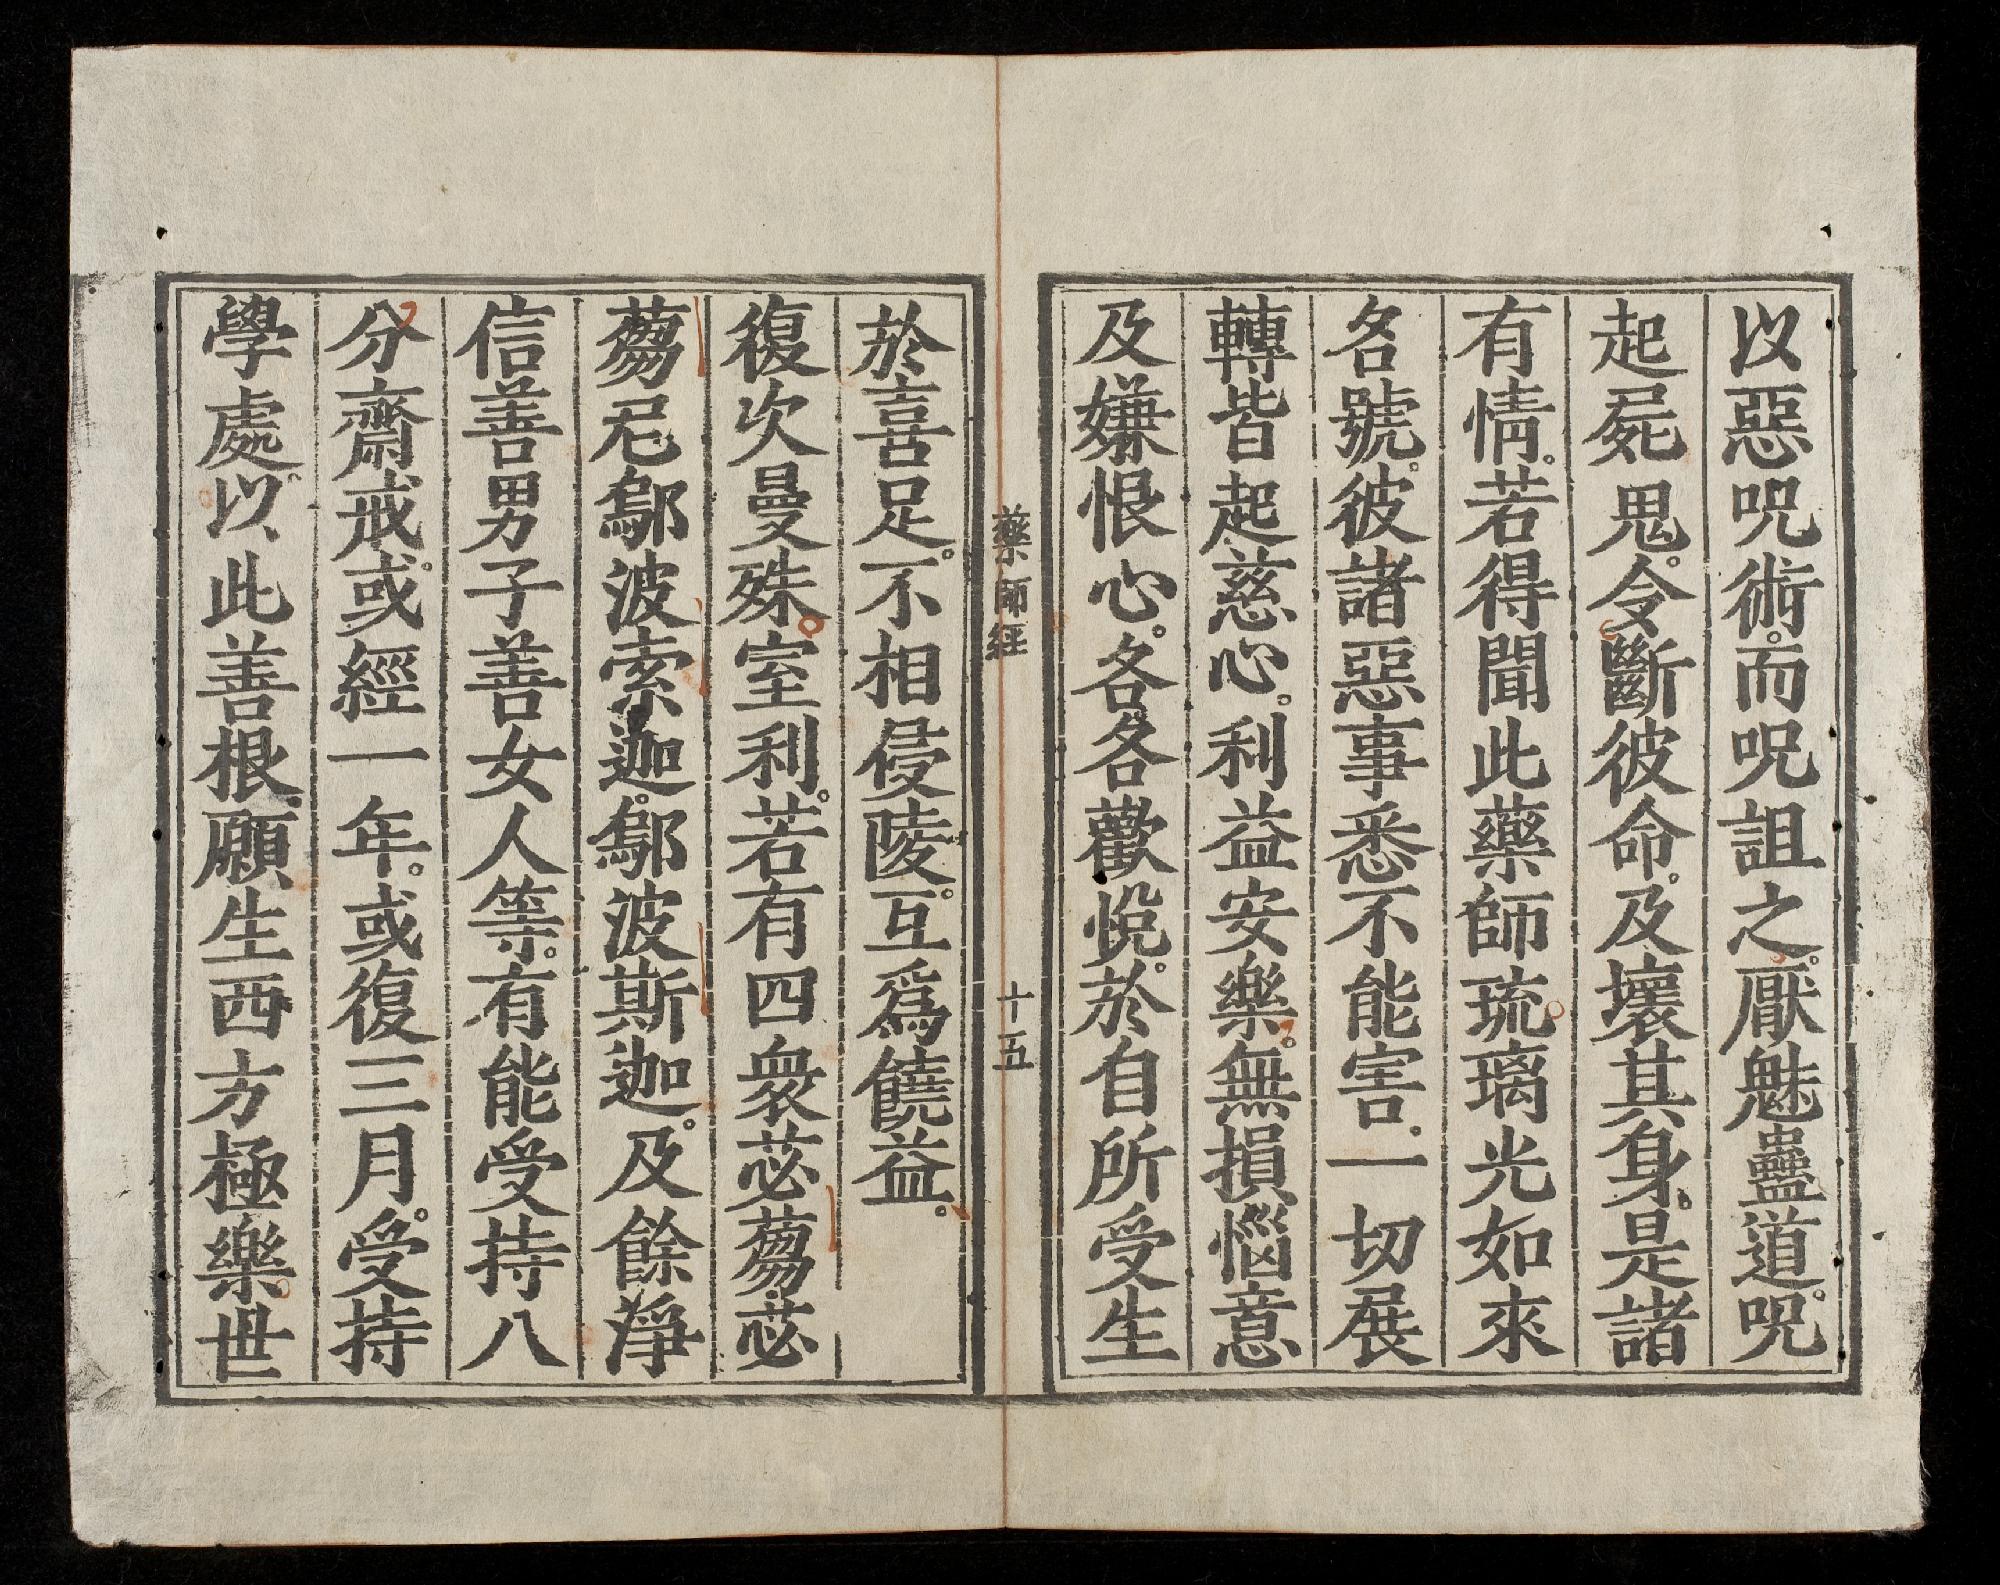 以惡呪術。而呪詛之。厭魅蠱道。呪
起屍鬼。令斷彼命。及壞其身。是諸
有情。若得聞此藥師琉璃光如來
名號。彼諸惡事悉不能害。一切展
轉皆起慈心。利益安樂。無損惱意
及嫌恨心。各各歡悅。於自所受生
藥師經
十五
於喜足。不相侵陵。互爲饒益。
復次曼殊室利。若有四衆苾蒭苾
蒭尼鄔波索迦。鄔波斯迦。及餘淨
信善男子善女人等。有能受持八
分齋戒。或經一年。或復三月。受持
學處。以此善根。願生西方極樂世